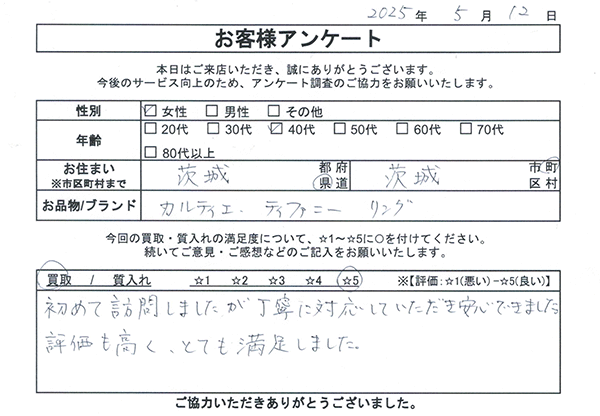 2025年 5月 12日
お客様アンケート
本日はご来店いただき、誠にありがとうございます。
今後のサービス向上のため、アンケート調査のご協力をお願いいたします。
性別 ☑女性 □男性 □その他
年齢 □20代 □30代 ☑40代 □50代 □60代 □70代
□80代以上
お住まい 茨城 都府県道 茨城 市町区村
※市区町村まで
お品物/ブランド カルティエ. ティファニー リング
今回の買取・質入れの満足度について、☆1～☆5に○を付けてください。
続いてご意見・ご感想などのご記入をお願いいたします。
買取 / 質入れ ☆1 ☆2 ☆3 ☆4 ☆5 ※【評価:☆1(悪い)-☆5(良い)】
初めて訪問しましたが丁寧に対応していただき安心できました
評価も高く、とても満足しました。
ご協力いただきありがとうございました。